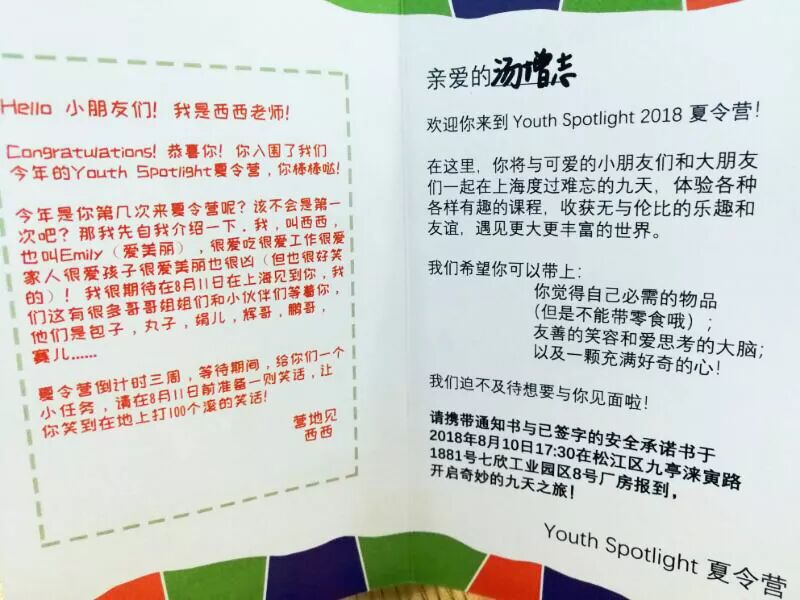 Hello 小朋友们！我是西西老师！
Congratulations！恭喜你！你入围了我们
今年的Youth Spotlight夏令营，你棒棒哒！
今年是你第几次来夏令营呢？该不会是第一
次吧？那我先自我介绍一下．我，叫西西，
也叫Emily（爱美丽），很爱吃很爱工作很爱
家人很爱孩子很爱美丽也很凶（但也很好笑
的）！我很期待在8月11日在上海见到你，我
们这有很多哥哥姐姐们和小伙伴们等着你，
他们是包子，丸子，娟儿，辉哥，鹏哥，
赛儿……
夏令营倒计时三周，等待期间，给你们一个
小任务，请在8月11日前准备一则笑话，让
你笑到在地上打100个滚的笑话！
营地见
西西
亲爱的汤增志
欢迎你来到 Youth Spotlight 2018 夏令营！
在这里，你将与可爱的小朋友们和大朋友
们一起在上海度过难忘的九天，体验各种
各样有趣的课程，收获无与伦比的乐趣和
友谊，遇见更大更丰富的世界。
我们希望你可以带上：
你觉得自己必需的物品
（但是不能带零食哦）；
友善的笑容和爱思考的大脑；
以及一颗充满好奇的心！
我们迫不及待想要与你见面啦！
请携带通知书与已签字的安全承诺书于
2018年8月10日17:30在松江区九亭涞寅路
1881号七欣工业园区8号厂房报到，
开启奇妙的九天之旅！
Youth Spotlight 夏令营